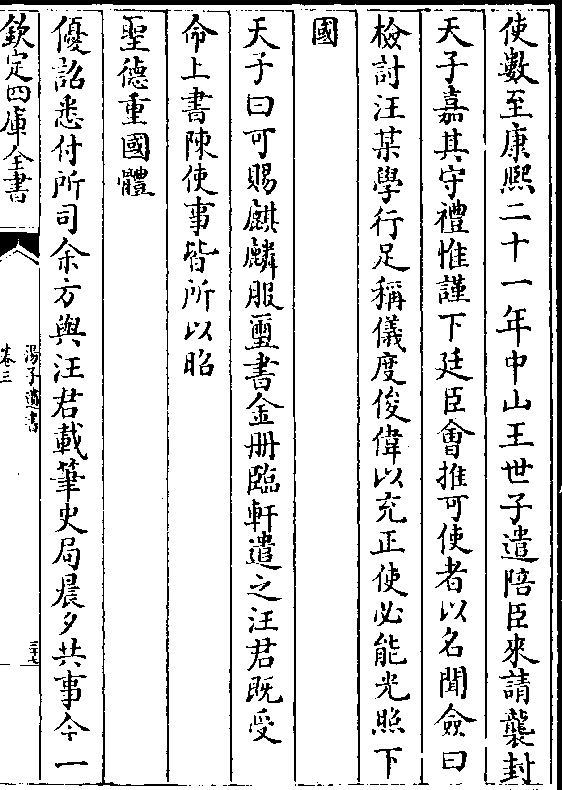 使數至康熙二十一年中山王世子遣陪臣來請襲封
天子嘉其守禮惟謹下廷臣會推可使者以名聞僉曰
檢討汪某學行足稱儀度俊偉以充正使必能光照下
國
天子曰可賜麒麟服璽書金册臨軒遣之汪君既受
命上書陳使事皆所以昭
聖德重國體
優詔悉付所司余方與汪君載筆史局晨夕共事今一
欽定四庫全書
湯子遺書
卷三
三十七